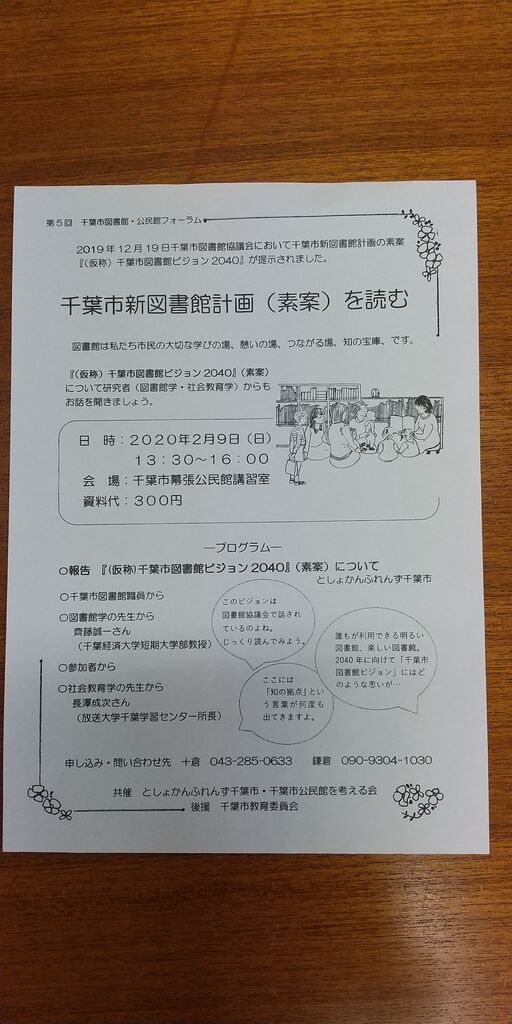 第5回　千葉市図書館・公民館フォーラム
2019年12月19日千葉市図書館協議会において千葉市新図書館計画の素案
『(仮称) 千葉市図書館ビジョン2040』が提示されました。
千葉市新図書館計画（素案）を読む
図書館は私たち市民の大切な学びの場、憩いの場、つながる場、知の宝庫、です。
『(仮称) 千葉市図書館ビジョン2040』(素案)
について研究者（図書館学・社会教育学）からも
お話を聞きましょう。
日　時：2020年2月9日（日）
13：30～16：00
会　場：千葉市幕張公民館講習室
資料代：300円
―プログラム―
○報告　『(仮称)千葉市図書館ビジョン2040』(素案）について
としょかんふれんず千葉市
○千葉市図書館職員から
○図書館学の先生から
齊藤誠一さん
（千葉経済大学短期大学部教授）
○参加者から
○社会教育学の先生から
長澤成次さん
（放送大学千葉学習センター所長）
このビジョンは
図書館協議会で話され
ているのよね。
じっくり読んでみよう。
誰もが利用できる明るい
図書館、楽しい図書館。
2040年に向けて「千葉市
図書館ビジョン」にはど
のような思いが…
ここには
「知の拠点」とい
う言葉が何度も
出てきますよ。
申し込み・問い合わせ先　十倉　043-285-0633　　鎌倉　090-9304-1030
共催　としょかんふれんず千葉市・千葉市公民館を考える会
後援　千葉市教育委員会